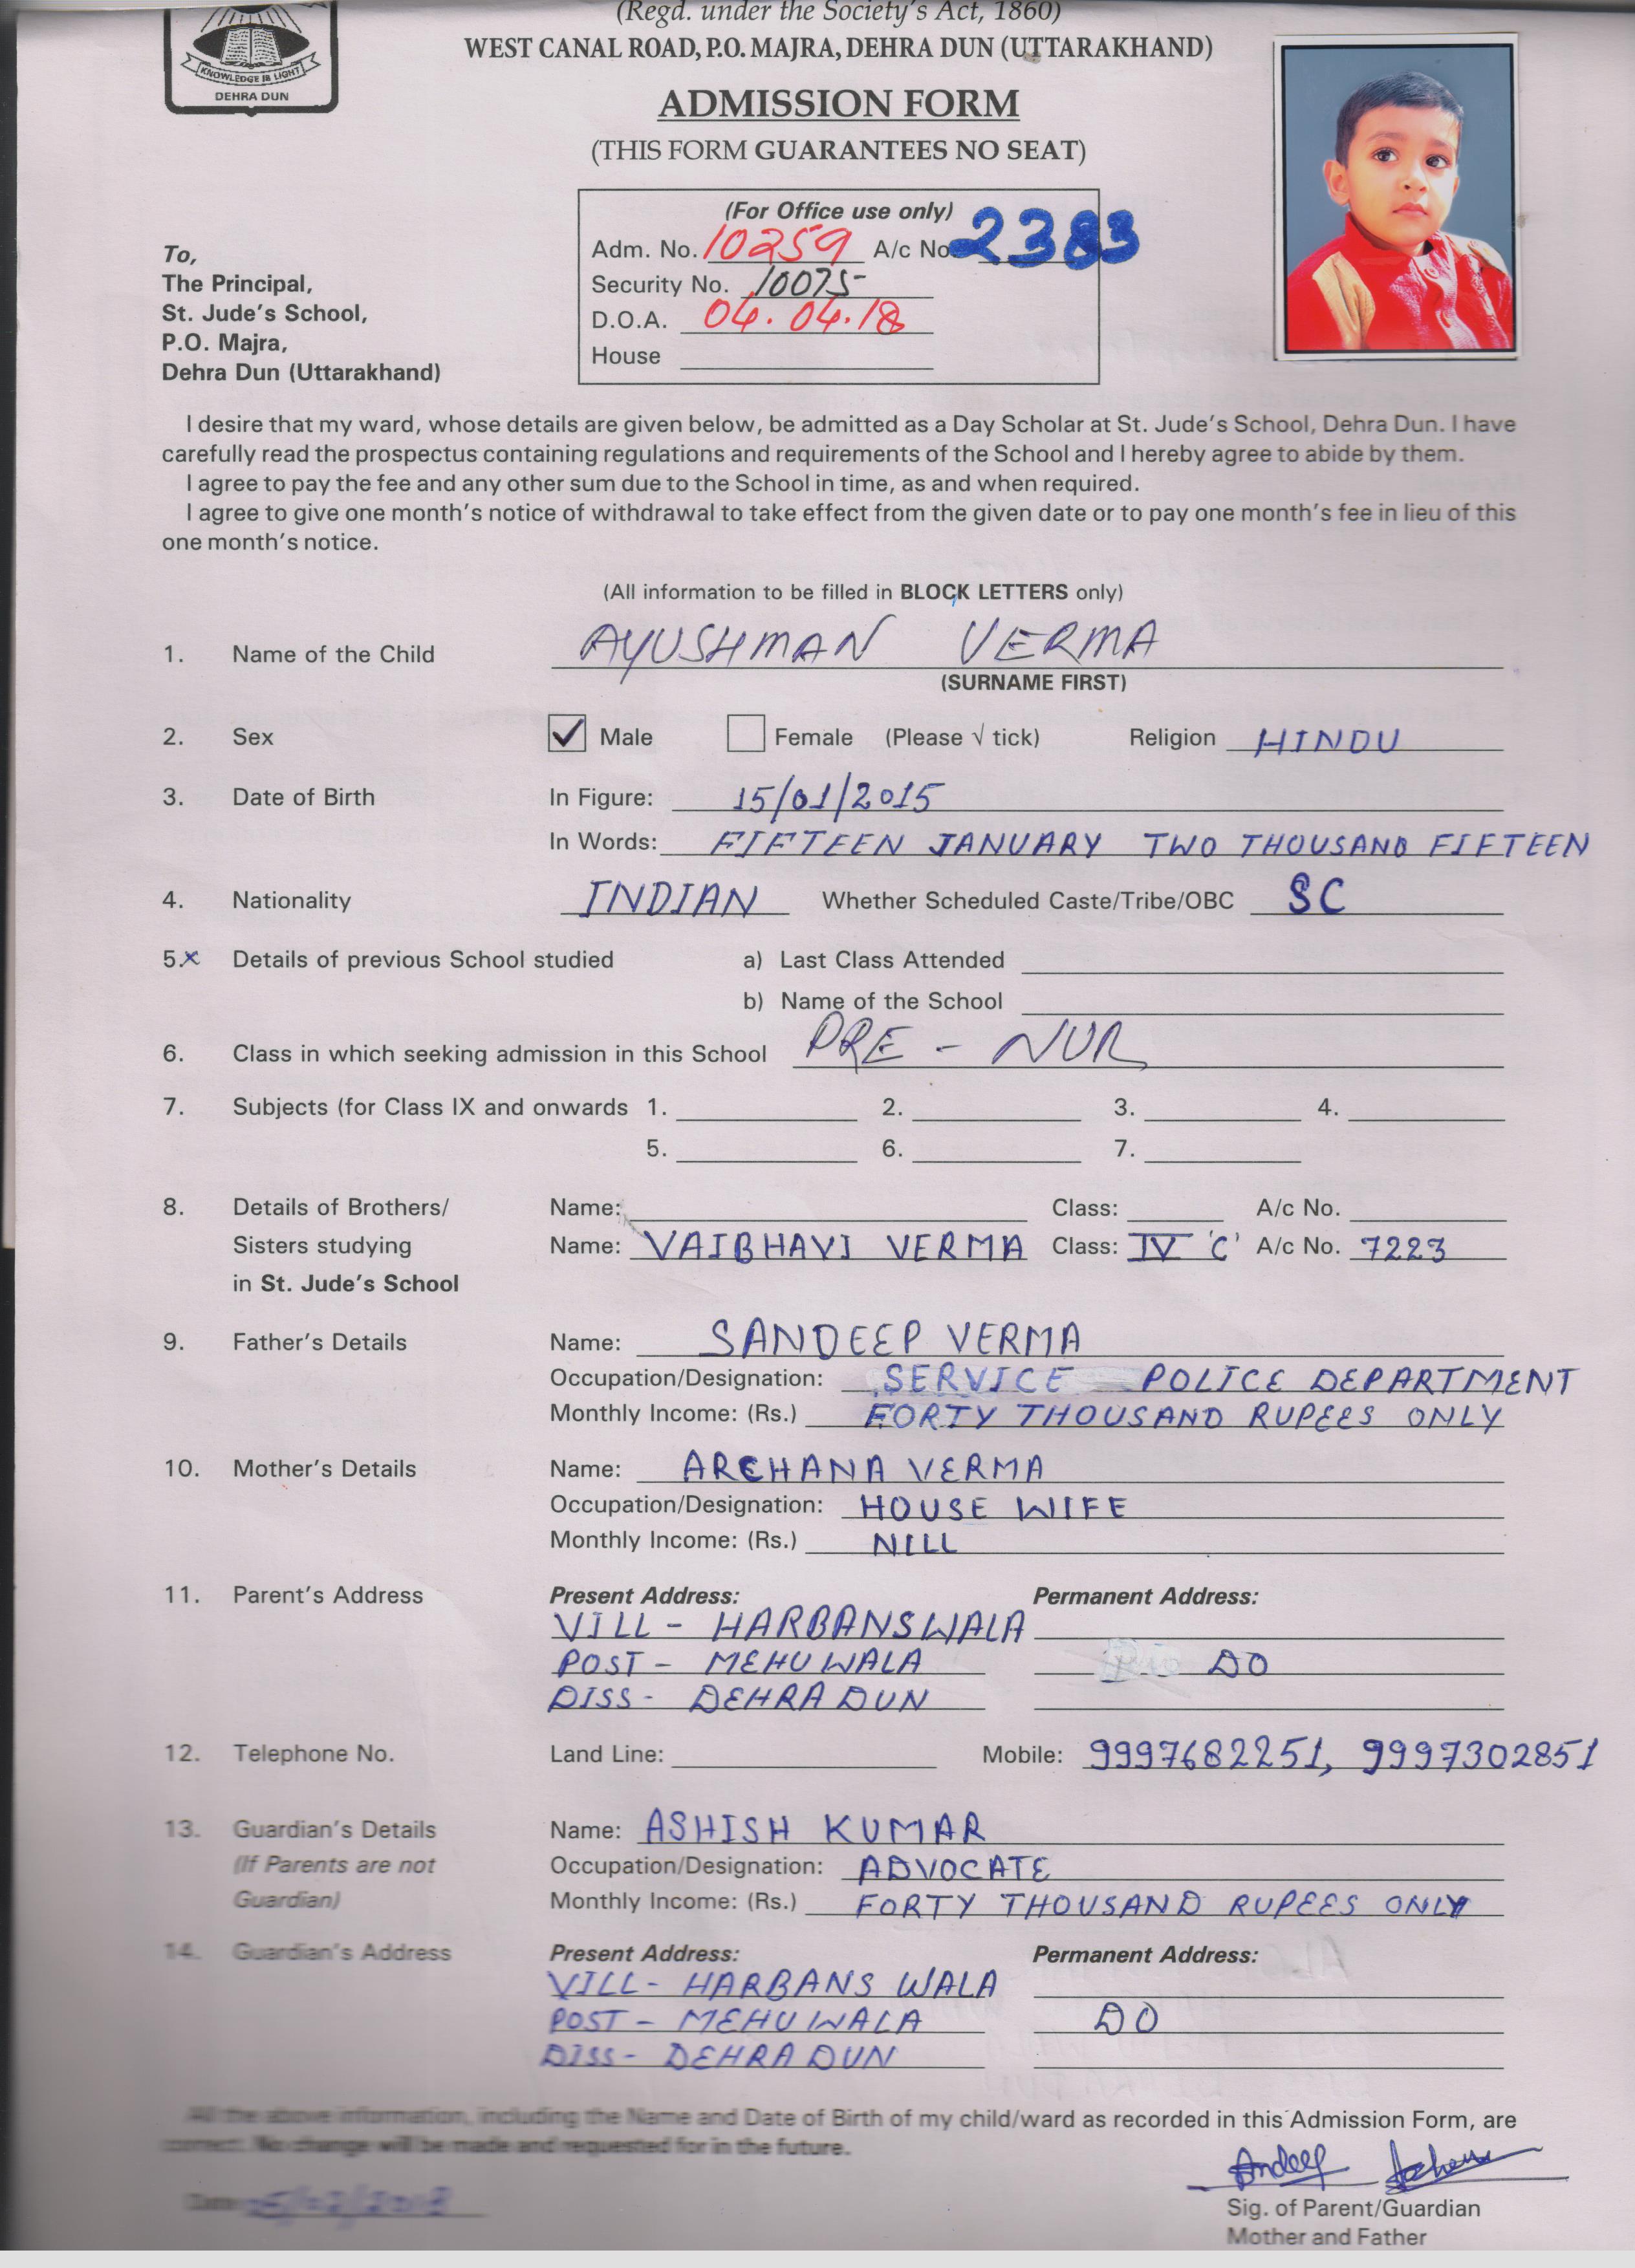 (Regd. under the Society's Act, 1860)
WEST CANAL ROAD, P.O. MAJRA, DEHRA DUN (UTTARAKHAND)
KNOWLEDGE IS LIGHT
DEHRA DUN
ADMISSION FORM
(THIS FORM GUARANTEES NO SEAT)
(For Office use only)
Adm. No. 10259 A/c No. 2383
Security No. 10075
D.O.A. 04.04.18
House
To,
The Principal,
St. Jude's School,
P.O. Majra,
Dehra Dun (Uttarakhand)
I desire that my ward, whose details are given below, be admitted as a Day Scholar at St. Jude's School, Dehra Dun. I have
carefully read the prospectus containing regulations and requirements of the School and I hereby agree to abide by them.
I agree to pay the fee and any other sum due to the School in time, as and when required.
I agree to give one month's notice of withdrawal to take effect from the given date or to pay one month's fee in lieu of this
one month's notice.
(All information to be filled in BLOCK LETTERS only)
1. Name of the Child AYUSHMAN VERMA
(SURNAME FIRST)
2. Sex ✓ Male Female (Please √ tick) Religion HINDU
3. Date of Birth In Figure: 15/01/2015
In Words: FIFTEEN JANUARY TWO THOUSAND FIFTEEN
4. Nationality INDIAN Whether Scheduled Caste/Tribe/OBC SC
5.x Details of previous School studied a) Last Class Attended
b) Name of the School
6. Class in which seeking admission in this School PRE - NUR
7. Subjects (for Class IX and onwards 1. 2. 3. 4.
5. 6. 7.
8. Details of Brothers/ Name: Class: A/c No.
Sisters studying Name: VAIBHAVI VERMA Class: IV 'C' A/c No. 7223
in St. Jude's School
9. Father's Details Name: SANDEEP VERMA
Occupation/Designation: SERVICE POLICE DEPARTMENT
Monthly Income: (Rs.) FORTY THOUSAND RUPEES ONLY
10. Mother's Details Name: ARCHANA VERMA
Occupation/Designation: HOUSE WIFE
Monthly Income: (Rs.) NILL
11. Parent's Address Present Address: Permanent Address:
VILL - HARBANSWALA
POST - MEHUWALA DO
DISS - DEHRA DUN
12. Telephone No. Land Line: Mobile: 9997682251, 9997302851
13. Guardian's Details Name: ASHISH KUMAR
(If Parents are not Occupation/Designation: ADVOCATE
Guardian) Monthly Income: (Rs.) FORTY THOUSAND RUPEES ONLY
14. Guardian's Address Present Address: Permanent Address:
VILL - HARBANS WALA
POST - MEHUWALA DO
DISS - DEHRA DUN
All the above information, including the Name and Date of Birth of my child/ward as recorded in this Admission Form, are
correct. No change will be made and requested for in the future.
Date
Sig. of Parent/Guardian
Mother and Father